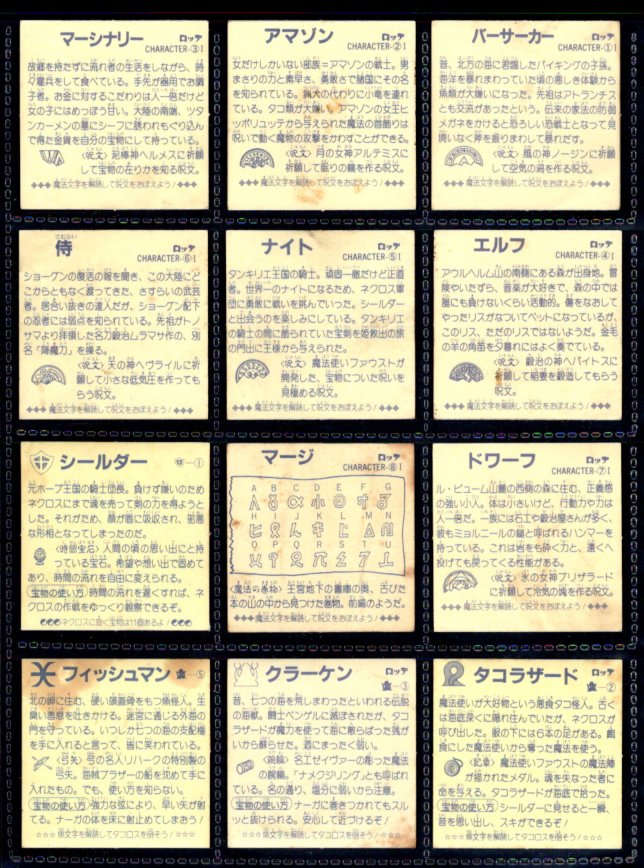 マーシナリー
ロッテ
CHARACTER-③I
故郷を持たずに流れ者の生活をしながら、時
々傭兵をして食べている。手先が器用でお調
子者。お金に対するこだわりは人一倍だけど
女の子にはめっぽう甘い。大陸の南端、ツタ
ンカーメンの墓にシーフに誘われもぐり込ん
で得た金貨を自分の宝物にして持っている。
〈呪文〉泥棒神ヘルメスに祈願
して宝物の在りかを知る呪文。
◆◆◆魔法文字を解読して呪文をおぼえよう!◆◆◆
アマゾン
ロッテ
CHARACTER-②I
女だけしかいない部族=アマゾンの戦士。男
まさりの力と素早さ、勇敢さで諸国にその名
を知られている。猟犬の代わりに小竜を連れ
ている。タコ類が大嫌い。アマゾンの女王ヒ
ッポリュッテから与えられた魔法の首飾りは
呪いで動く魔物の攻撃をかわすことができる。
〈呪文〉月の女神アルテミスに
祈願して眠りの霧を作る呪文。
◆◆◆魔法文字を解読して呪文をおぼえよう!◆◆◆
バーサーカー
ロッテ
CHARACTER-①I
昔、北方の海に君臨したバイキングの子孫。
海洋を暴れまわっていた頃の悪しき体験から
魚類が大嫌いになった。先祖はアトランチス
とも交流があったという。伝来の家法の防御
メガネをかけると恐ろしい恐戦士となって見
境いなく斧を振りまわして暴れだす。
〈呪文〉風の神ノージンに祈願
して空気の渦を作る呪文。
◆◆◆魔法文字を解読して呪文をおぼえよう!◆◆◆
さむらい
侍
ロッテ
CHARACTER-⑥I
ショーグンの復活の報を聞き、この大陸にど
こからともなく渡ってきた、さすらいの武芸
者。居合い抜きの達人だが、ショーグン配下
の忍者には弱点を知られている。先祖がトノ
サマより拝領した名刀鍛冶ムラマサ作の、別
名「降魔刀」を操る。
〈呪文〉天の神ヘヴライルに祈
願して小さな低気圧を作っても
らう呪文。
◆◆◆魔法文字を解読して呪文をおぼえよう!◆◆◆
ナイト
ロッテ
CHARACTER-⑤I
タンキリエ王国の騎士。頑固一徹だけど正直
者。世界一のナイトになるため、ネクロス軍
団に勇敢に戦いを挑んでいった。シールダー
と出会うのを楽しみにしている。タンキリエ
の騎士の間に飾られていた宝剣を姫救出の旅
の門出に王様から与えられた。
〈呪文〉魔法使いファウストが
開発した、宝物についた呪いを
見極める呪文。
◆◆◆魔法文字を解読して呪文をおぼえよう!◆◆◆
エルフ
ロッテ
CHARACTER-④I
アウルヘルム山の南側にある森が出身地。冒
険やいたずら、音楽が大好きで、森の中では
誰にも負けないくらい活動的。傷をなおして
やったリスがなついてペットになっているが、
このリス、ただのリスではないようだ。金毛
の羊の角笛を夕暮れにはよく奏でている。
〈呪文〉鍛冶の神ヘパイトスに
祈願して稲妻を鍛造してもらう
呪文。
◆◆◆魔法文字を解読して呪文をおぼえよう!◆◆◆
シールダー
ロッテ
①
元ホープ王国の騎士団長。負けず嫌いのため
ネクロスにまで魂を売って剣の力を得ようと
した。それがため、顔が盾に吸収され、邪悪
な形相となってしまったのだ。
〈時翡宝石〉人間の頃の思い出にと持
っている宝石。希望や想い出で固めて
あり、時間の流れを自由に変えられる。
宝物の使い方 時間の流れを遅くすれば、ネ
クロスの作戦をゆっくり観察できるぞ。
ネクロスに効く宝物は1個あるよ!
マージ
ロッテ
CHARACTER-⑧I
A B C D E F G
H I J K L M N
O P Q R S T
〈魔法の巻物〉王宮地下の書庫の奥、古びた
本の山の中から見つけた巻物。前編のようだ。
◆◆◆魔法文字を解読して呪文をおぼえよう!◆◆◆
ドワーフ
ロッテ
CHARACTER-⑦I
ル・ピューム山麓の西側の森に住む、正義感
の強い小人。体は小さいけど、行動力や力は
人一倍だ。一族には石工や鍛冶屋さんが多く、
彼もミョルニールの鎚と呼ばれるハンマーを
持っている。これは岩も砕く力と、遠くへ
投げても戻ってくる性能がある。
〈呪文〉氷の女神ブリザラード
に祈願して冷気の塊を作る呪文。
◆◆◆魔法文字を解読して呪文をおぼえよう!◆◆◆
フィッシュマン
ロッテ
⑤
北の岬に住む、硬い頭蓋骨をもつ魚怪人。生
臭い毒息を吐きかける。迷宮に通じる外海の
門を守っている。いつしか七つの海の支配権
を手に入れると言って、皆に笑われている。
〈弓矢〉弓の名人リハークの特別製の
弓矢。海賊ブラザーの船を沈めて手に
入れたもの。でも、使い方を知らない。
宝物の使い方 強力な弦により、早い矢が射
てる。ナーガの体を床に射止めてしまおう!
☆☆☆魚文字を解読してタコロスを倒そう!☆☆☆
クラーケン
ロッテ
③
昔、七つの海を荒しまわったといわれる伝説
の海獣。闘士ペンゲルに滅ぼされたが、タコ
ラザードが魔力を使って海に散らばった残が
いから蘇らせた。酒にまったく弱い。
〈腕輪〉名工セイヴァーの彫った魔法
の腕輪。「ナメクジリング」とも呼ばれて
いる。名の通り、塩分に弱いから注意。
宝物の使い方 ナーガに巻きつかれてもスル
ッと抜けられる。安心して近づけるぞ!
☆☆☆魚文字を解読してタコロスを倒そう!☆☆☆
タコラザード
ロッテ
②
魔法使いが大好物という悪食タコ怪人。古く
は海底深くに隠れ住んでいたが、ネクロスが
呼び出した。服の下には6本の足がある。餌
食にした魔法使いから奪った魔法を使う。
〈紀章〉魔法使いファウストの魔法陣
が描かれたメダル。魂を失なった者に
命を与える。タコラザードが海底で拾った。
宝物の使い方 シールダーに見せると一瞬、
昔を思い出し、スキができるぞ!
☆☆☆魚文字を解読してタコロスを倒そう!☆☆☆